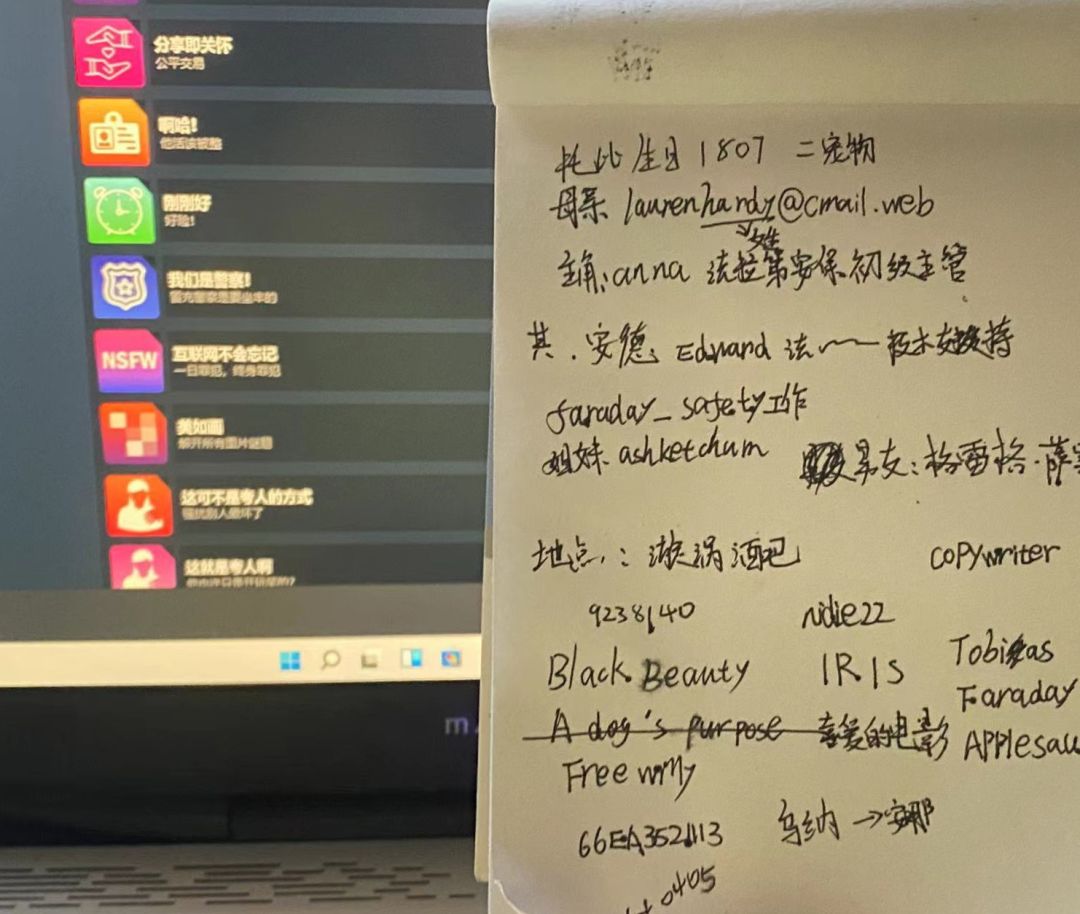 分享即关怀
公平交易
啊哈！
刚刚好
好险！
我们是警察！
冒充警察是要坐牢的
NSFW
互联网不会忘记
一日罪犯，终身罪犯
美如画
解开所有图片谜题
这可不是夸人的方式
这就是夸人啊
m.
托比生日 1807 二宠物
母亲 laurenhardy@cmail.web
姓
主角：anna 法拉第安保初级主管
其. 安德 Edward 法 技术支持
faraday_safety 工作
姐妹 ashketchum 男友：格雷格·萨
地点：漩涡酒吧 copywriter
9238140
Black Beauty IRIS Tobias
Faraday
A dog's purpose 喜爱的电影 Applesau
Free willy
66EA352113 乌纳→安那
0405